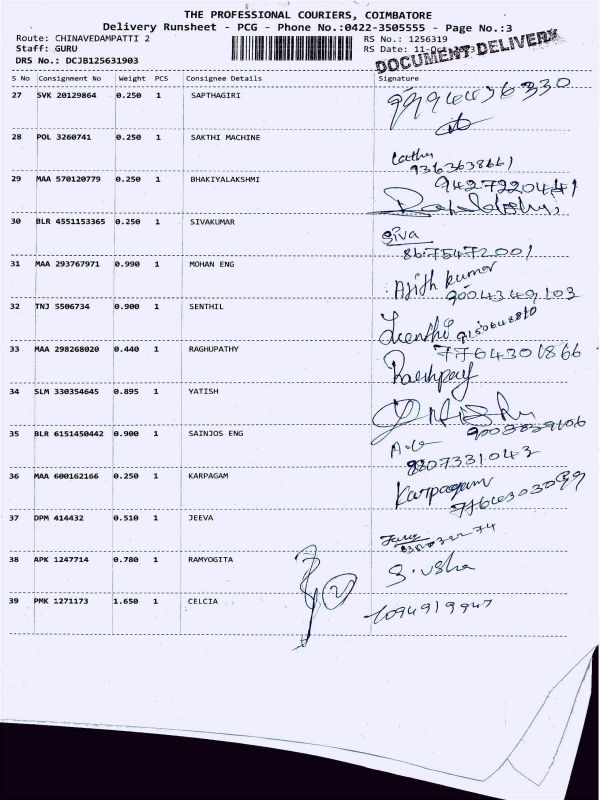 THE PROFESSIONAL COURIERS, COIMBATORE
Delivery Runsheet - PCG - Phone No.:0422-3505555 - Page No.:3
Route: CHINAVEDAMPATTI 2 RS No.: 1256319
Staff: GURU RS Date: 11-Oct-2023
DRS No.: DCJB125631903
DOCUMENT DELIVERY
S No Consignment No Weight PCS Consignee Details Signature
27 SVK 20129864 0.250 1 SAPTHAGIRI
28 POL 3260741 0.250 1 SAKTHI MACHINE
9363638661
29 MAA 570120779 0.250 1 BHAKIYALAKSHMI 9427220441
30 BLR 4551153365 0.250 1 SIVAKUMAR Siva
8675472001
31 MAA 293767971 0.990 1 MOHAN ENG Ajith kumar
9004349103
32 TNJ 5506734 0.900 1 SENTHIL
33 MAA 298268020 0.440 1 RAGHUPATHY 7764301866
34 SLM 330354645 0.895 1 YATISH
35 BLR 6151450442 0.900 1 SAINJOS ENG
8807331043
36 MAA 600162166 0.250 1 KARPAGAM Karpagam
37 DPM 414432 0.510 1 JEEVA
38 APK 1247714 0.780 1 RAMYOGITA S. usha
2
39 PMK 1271173 1.650 1 CELCIA